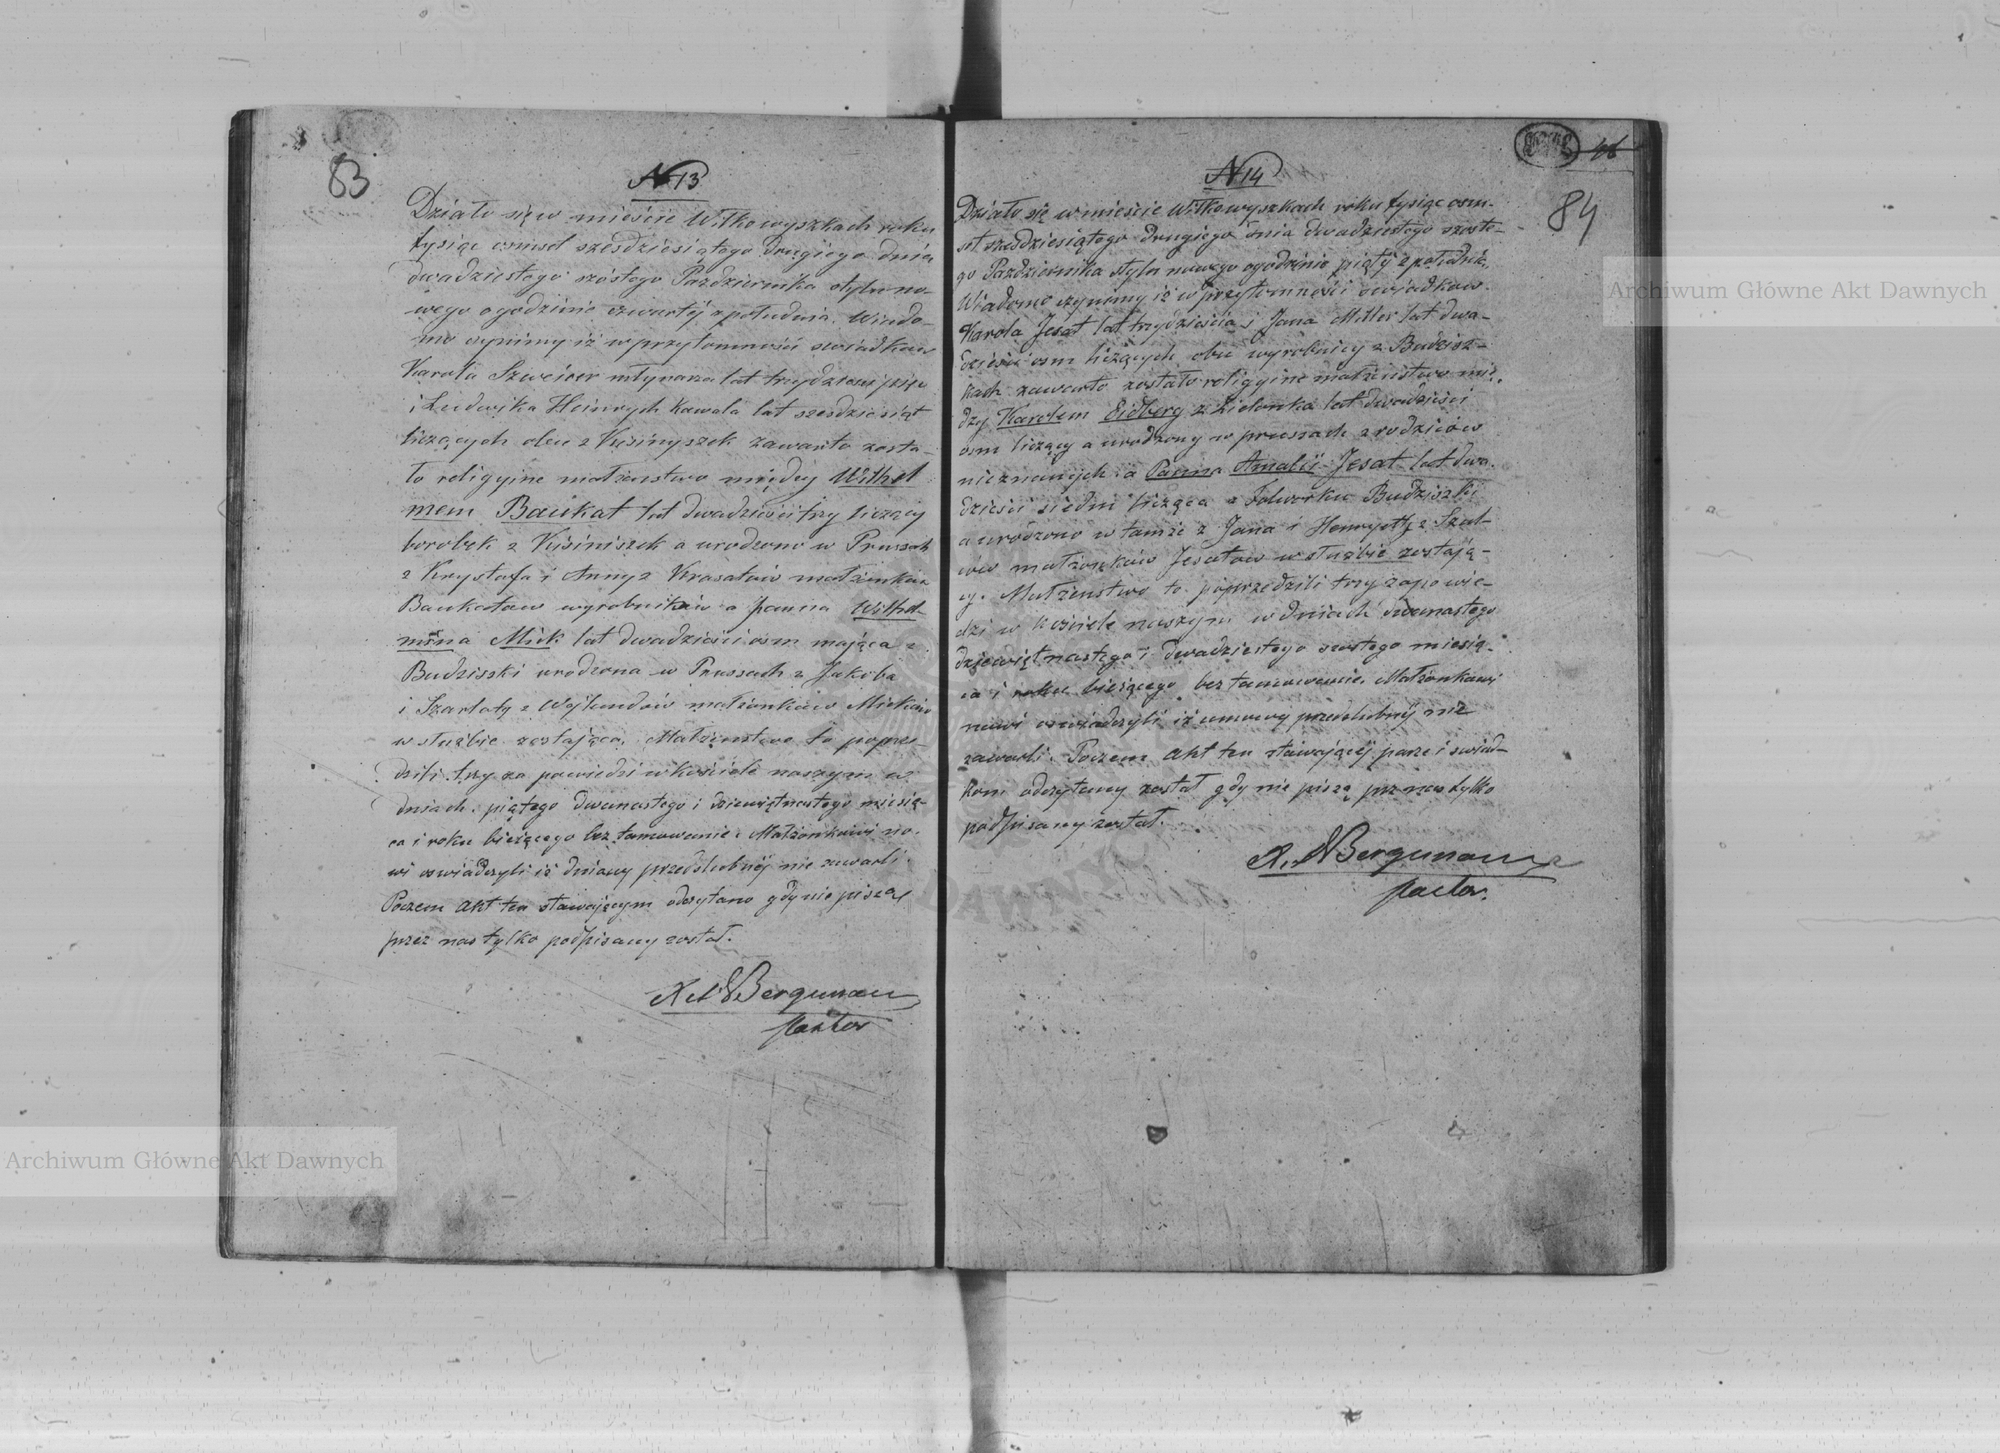 83
N 13
Działo się w mieście Wiłkowyszkach roku
tysiąc osmset sześdziesiątego drugiego dnia
dwadziestego szóstego Października stylu no-
wego o godzinie czwartéj z południa. Wiado-
mo czynimy iż w przytomności swiadków
Karola Szweizer młynarza lat trzydzieści pięć
i Ludwika Heinrych kowala lat szesdziesiąt
liczących obu z zawarte zosta-
ło religijne małżeństwo między Wilhel
mem Baukat lat dwadzieścia trzy liczący
z a urodzono w Prusach
z Krysztofa i Anny z małżonków
Baukatow wyrobników a panna Wilhel-
mina Mick lat dwadzieścia osm mająca z
Budziszki urodzona w Prussach z Jakóba
i Szarloty z małżonków Micków
w służbie zostająca. Małżeństwo to poprze-
dzili trzy zapowiedzi w kościele naszym w
dniach piątego dwunastego i dziewiętnastego miesią-
ca i roku bieżącego bez tamowanie. Małżonkowi no-
wi oswiadczyli iż umowy przedslubnéj nie zawarli.
Poczem Akt ten stawającym odczytano gdy nie piszą
przez nas tylko podpisany został.
Bergmann
Pastor
46
84
N 14
Działo się w mieście Wiłkowyszkach roku tysiąc osm-
set szesdziesiątego drugiego dnia dwadziestego szoste-
go Października stylu nowego o godzinie piątéj z południa.
Wiadomo czynimy iż w przytomności swiadków
Karola Jesat lat trzydzieścia i Jana Miller lat dwa-
dzieścia osm liczących obu wyrobnicy z Budzisz-
kach zawarte zostało religijne małżeństwo mię-
dzy Karolem Eidberg z Zielonka lat dwadzieścia
osm liczący a urodzony w prussach z rodziców
nieznanych a Panna Amalij Jesat lat dwa-
dzieścia siedm licząca z Folwarku Budziszki
a urodzono w tamże z Jana i Henryetty z Szal-
ów małżonków Jesatow w służbie zostają-
cy. Małżenstwo to poprzedzili trzy zapowie-
dzi w kościele naszym w dniach dwunastego
dziewiętnastego i dwadziestego szostego miesią-
ca i roku bieżącego bez tamowanie. Małżonkowi
nowi oswiadczyli iż umowy przedslubnéj nie
zawarli. Poczem Akt ten stawającéj parze i swiad-
kom odczytany został gdy nie piszą przez nas tylko
podpisany został.
Bergmann
Pastor.
Archiwum Główne Akt Dawnych
Archiwum Główne Akt Dawnych